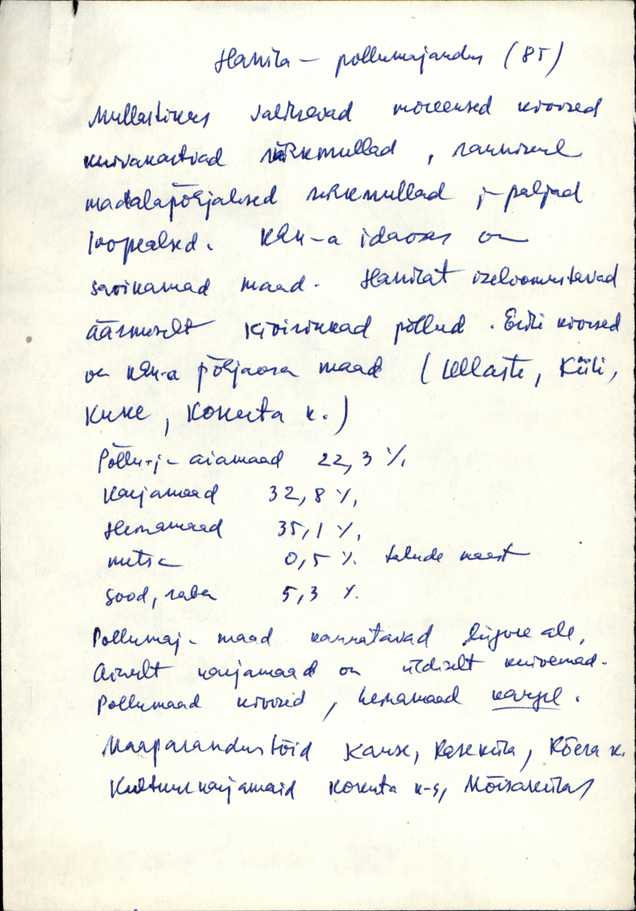 Hanila – põllumajandus (85)
Mullastikus valitsevad moreensed kivised
kuivakartvad rähkmullad, rannikul
madalapõhjalised rähkmullad j. paljad
loopealsed. Khk-a idaosas on
savikamad maad. Hanilat iseloomustavad
äärmiselt kivirikkad põllud. Eriti kivised
on khk-a põhjaosa maad (Ullaste, Kiili,
Kuke, Kokuta k.)
Põllu- j. aiamaad 22,3 %,
Karjamaad 32,8 %,
Heinamaad 35,1 %,
metsa 0,5 % talude maast
Sood, raba 5,3 %.
Põllumaj. maad kannatavad liigvee all,
Ainult karjamaad on üldiselt kuivemad.
Põllumaad kivised, heinamaad
Maaparandustöid Karuse, Rõera k.
Kultuurkarjamaid Kokuta k-s, Mõisakülas